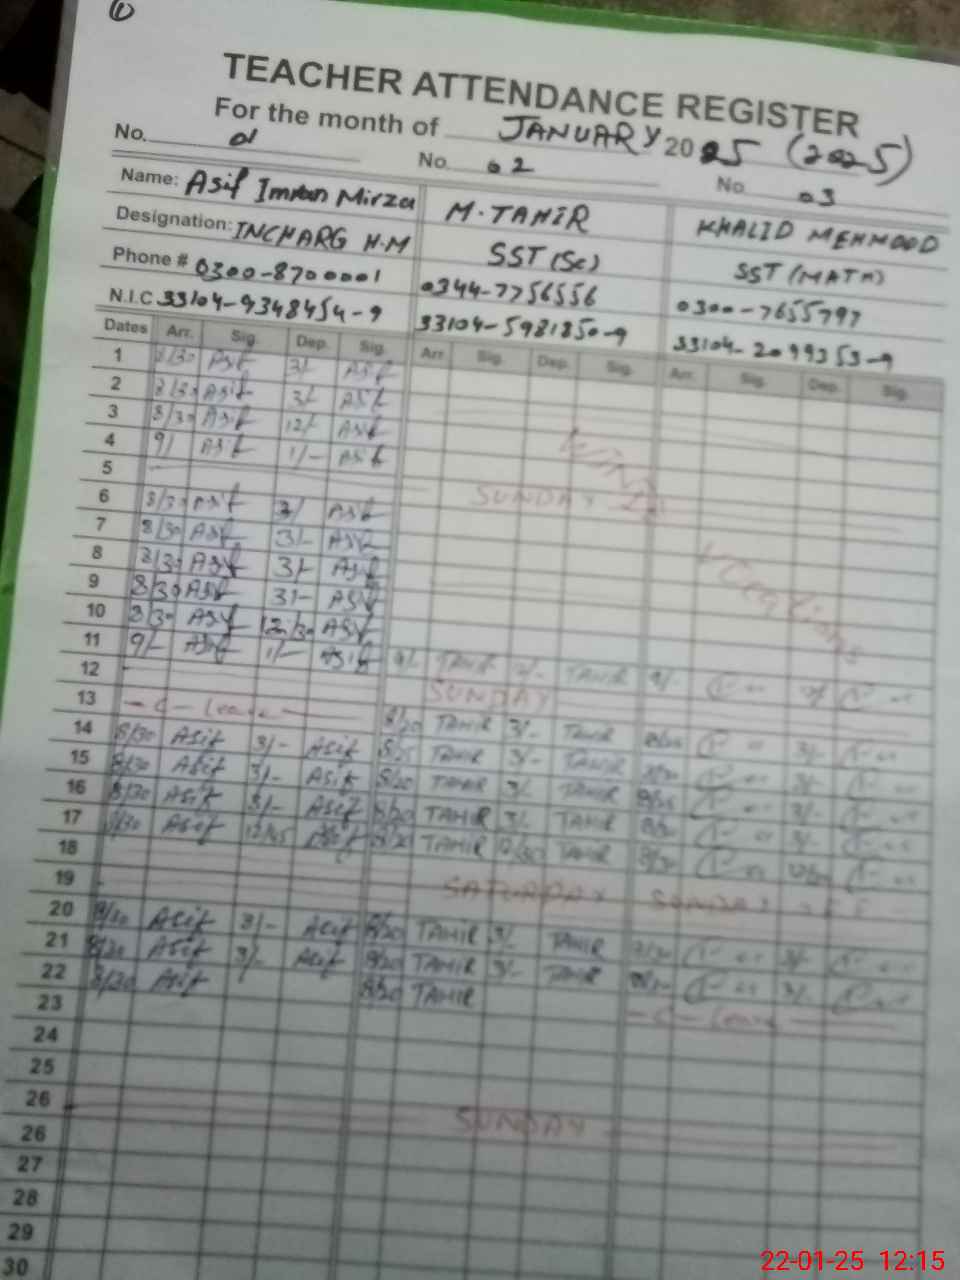 1
TEACHER ATTENDANCE REGISTER
For the month of JANUARY 2025 (2025)
No. 01 No. 02 No 03
Name: Asif Imran Mirza M. TAHIR KHALID MEHMOOD
Designation: INCHARG H.M SST (Sc) SST (MATH)
Phone # 0300-8700001 0344-7756556 0300-7655797
N.I.C 33104-9348454-9 33104-5981850-9 33104-2099353-9
Dates Arr. Sig. Dep. Sig. Arr. Sig. Dep. Sig. Arr. Sig. Dep. Sig.
1 8/30 Asif 3/- Asif
2 8/30 Asif 3/- Asif
3 8/30 Asif 12/- Asif
4 9/ Asif 1/- Asif
5 SUNDAY
6 8/30 Asif 3/ Asif
7 8/30 Asif 3/- Asif
8 8/30 Asif 3/- Asif
9 8/30 Asif 3/- Asif
10 8/30 Asif 12/30 Asif
11 9/- Asif 1/- Asif 9/- TAHIR TAHIR 9/-
12 SUNDAY
13 - C - Leave 8/20 TAHIR 3/- TAHIR
14 8/30 Asif 3/- Asif 8/25 TAHIR 3/- TAHIR
15 8/30 Asif 3/- Asif 8/20 TAHIR 3/- TAHIR
16 8/30 Asif 3/- Asif 8/20 TAHIR 3/- TAHIR
17 8/30 Asif 12/45 Asif 8/20 TAHIR 12/30 TAHIR
18
19 SATURDAY SUNDAY
20 8/30 Asif 3/- Asif 8/20 TAHIR 3/- TAHIR
21 8/30 Asif 3/- Asif 8/20 TAHIR 3/- TAHIR 3/-
22 8/30 Asif 8/20 TAHIR - C - Leave
23
24
25
26 SUNDAY
26
27
28
29
30
22-01-25 12:15